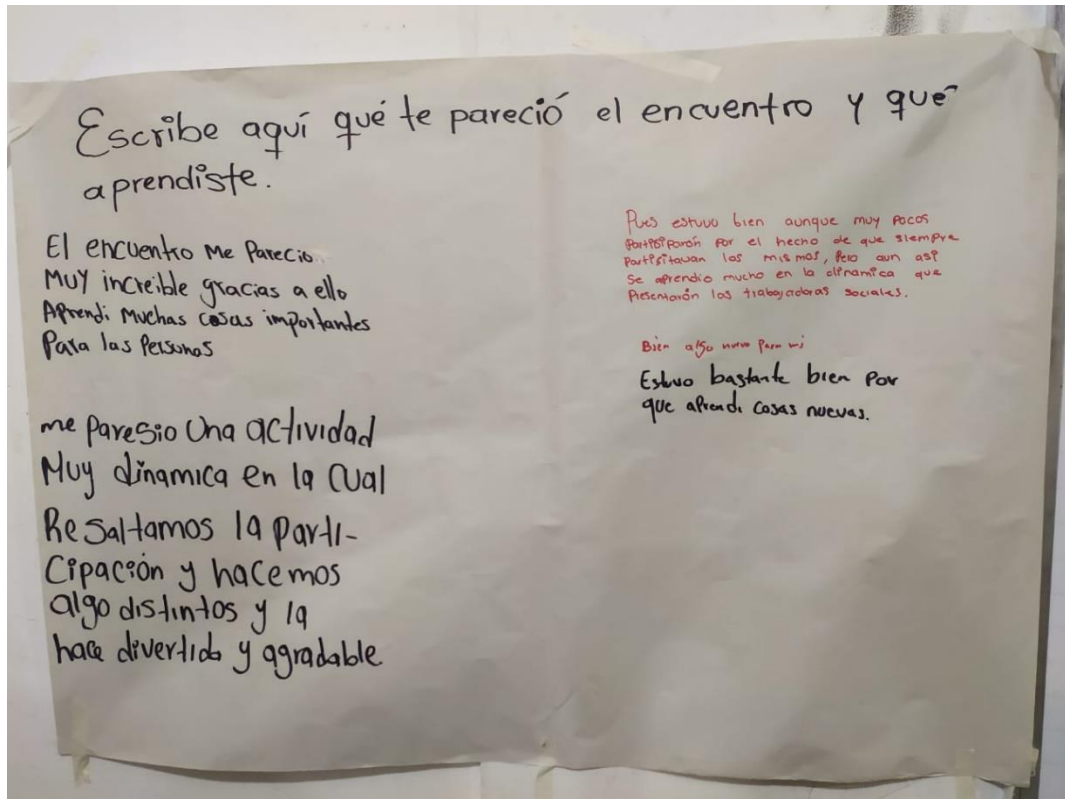 Escribe aquí qué te pareció el encuentro y qué
aprendiste.
El encuentro Me Parecio
MUY increible gracias a ello
Aprendi Muchas cosas importantes
Para las Personas
me paresio Una actividad
Muy dinamica en la Cual
ReSaltamos la parti-
Cipación y hacemos
algo distintos y la
hace divertida y agradable
Pues estuvo bien aunque muy pocos
Partisiparón por el hecho de que siempre
Partisitavan los mismos, Pero aun asi
Se aprendio mucho en la dinamica que
Presentarón las trabajadoras sociales.
Bien algo nuevo para mi
Estuvo bastante bien Por
que aprendi cosas nuevas.